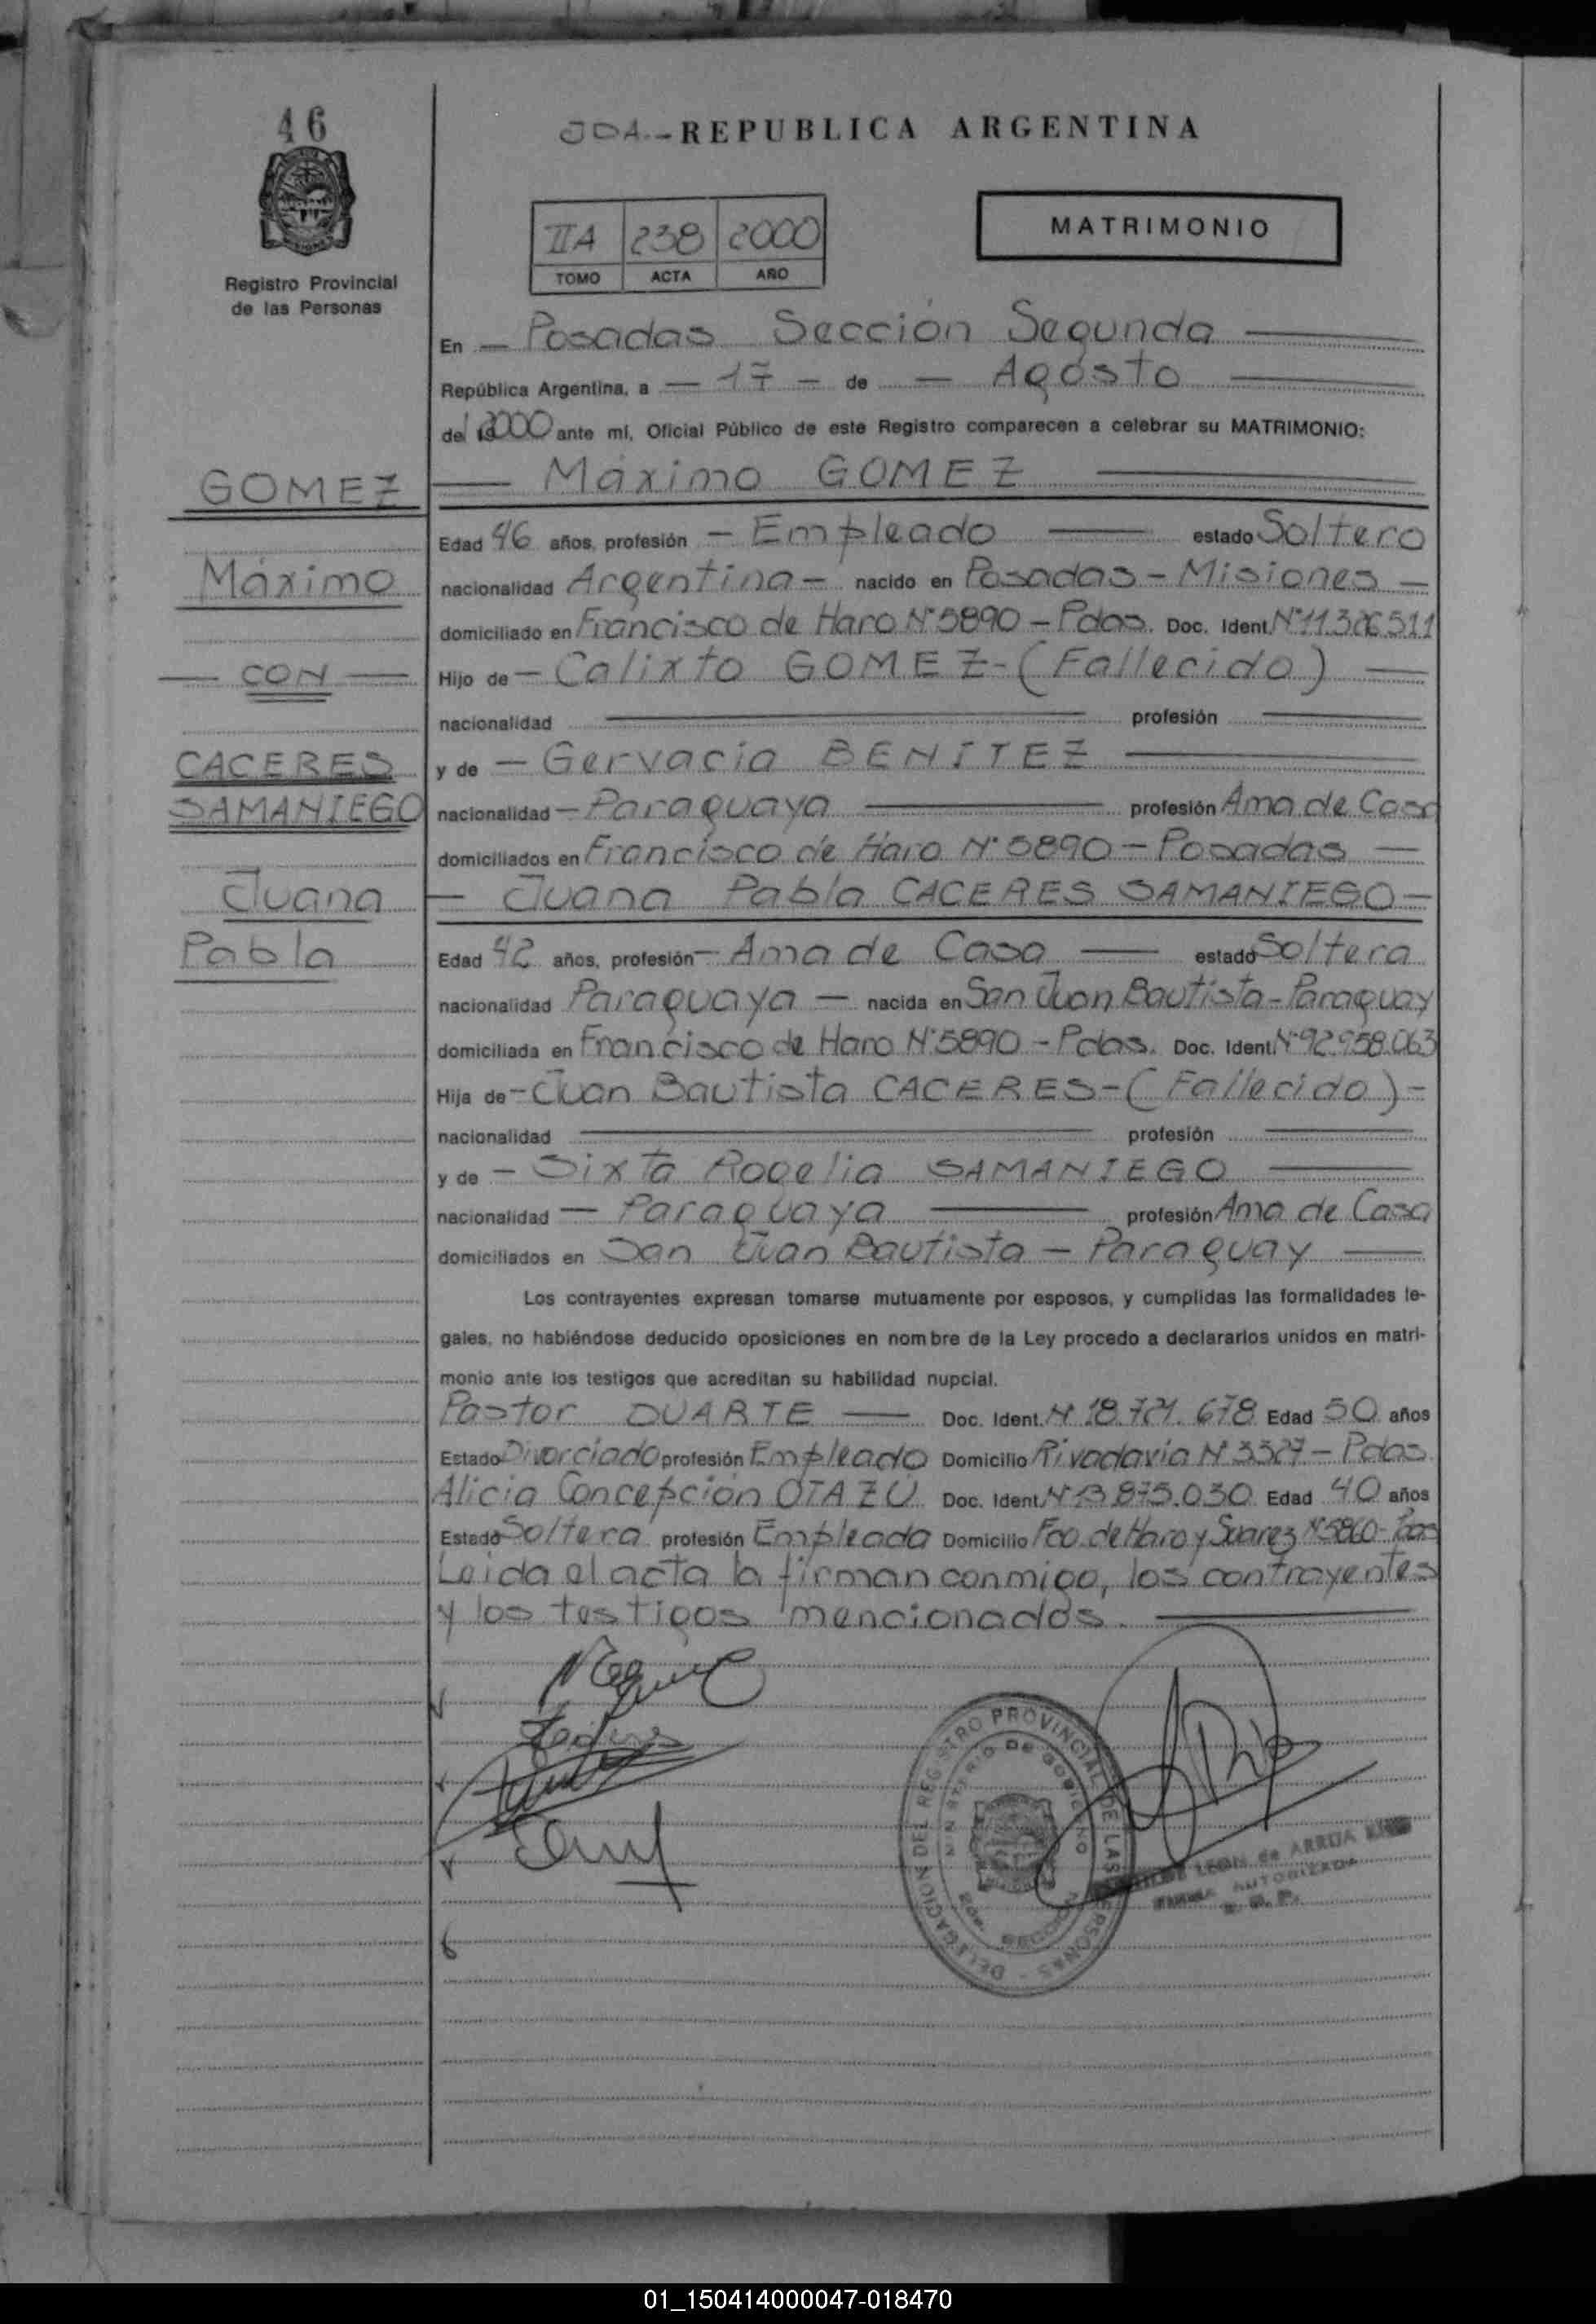 46
JDA.- REPUBLICA ARGENTINA
MATRIMONIO
IIA 238 2000
TOMO ACTA AÑO
Registro Provincial
de las Personas
En — Posadas Sección Segunda
República Argentina, a — 17 — de — Agosto
del 2000 ante mí, Oficial Público de este Registro comparecen a celebrar su MATRIMONIO:
GOMEZ
— Máximo GOMEZ
Edad 46 años, profesión — Empleado — estado Soltero
Máximo
nacionalidad Argentina — nacido en Posadas - Misiones —
domiciliado en Francisco de Haro Nº 5890 - Pdas. Doc. Ident. Nº 11.306.511
— CON —
Hijo de — Calixto GOMEZ - (Fallecido) —
nacionalidad — profesión —
CACERES
y de — Gervacia BENITEZ
SAMANIEGO
nacionalidad — Paraguaya — profesión Ama de Casa
domiciliados en Francisco de Haro Nº 5890 - Posadas —
Juana
— Juana Pabla CACERES SAMANIEGO —
Pabla
Edad 42 años, profesión — Ama de Casa — estado Soltera
nacionalidad Paraguaya — nacida en San Juan Bautista - Paraguay
domiciliada en Francisco de Haro Nº 5890 - Pdas. Doc. Ident. Nº 92.958.063
Hija de - Juan Bautista CACERES - (Fallecido) -
nacionalidad — profesión —
y de — Sixta Rogelia SAMANIEGO
nacionalidad — Paraguaya — profesión Ama de Casa
domiciliados en San Juan Bautista — Paraguay —
Los contrayentes expresan tomarse mutuamente por esposos, y cumplidas las formalidades le-
gales, no habiéndose deducido oposiciones en nombre de la Ley procedo a declararlos unidos en matri-
monio ante los testigos que acreditan su habilidad nupcial.
Pastor DUARTE — Doc. Ident. Nº 18.721.678 Edad 50 años
Estado Divorciado profesión Empleado Domicilio Rivadavia Nº 3327 - Pdas
Alicia Concepción OTAZÚ Doc. Ident. Nº 13.875.030 Edad 40 años
Estado Soltera profesión Empleada Domicilio Fco. de Haro y Suarez Nº 5860 - Pdas
Leida el acta la firman conmigo, los contrayentes
y los testigos mencionados.
DELEGACION DEL REGISTRO PROVINCIAL DE LAS PERSONAS
MINISTERIO DE GOBIERNO
SECCION
LEON de ARRUA
FIRMA AUTORIZADA
R. P. P.
01_150414000047-018470